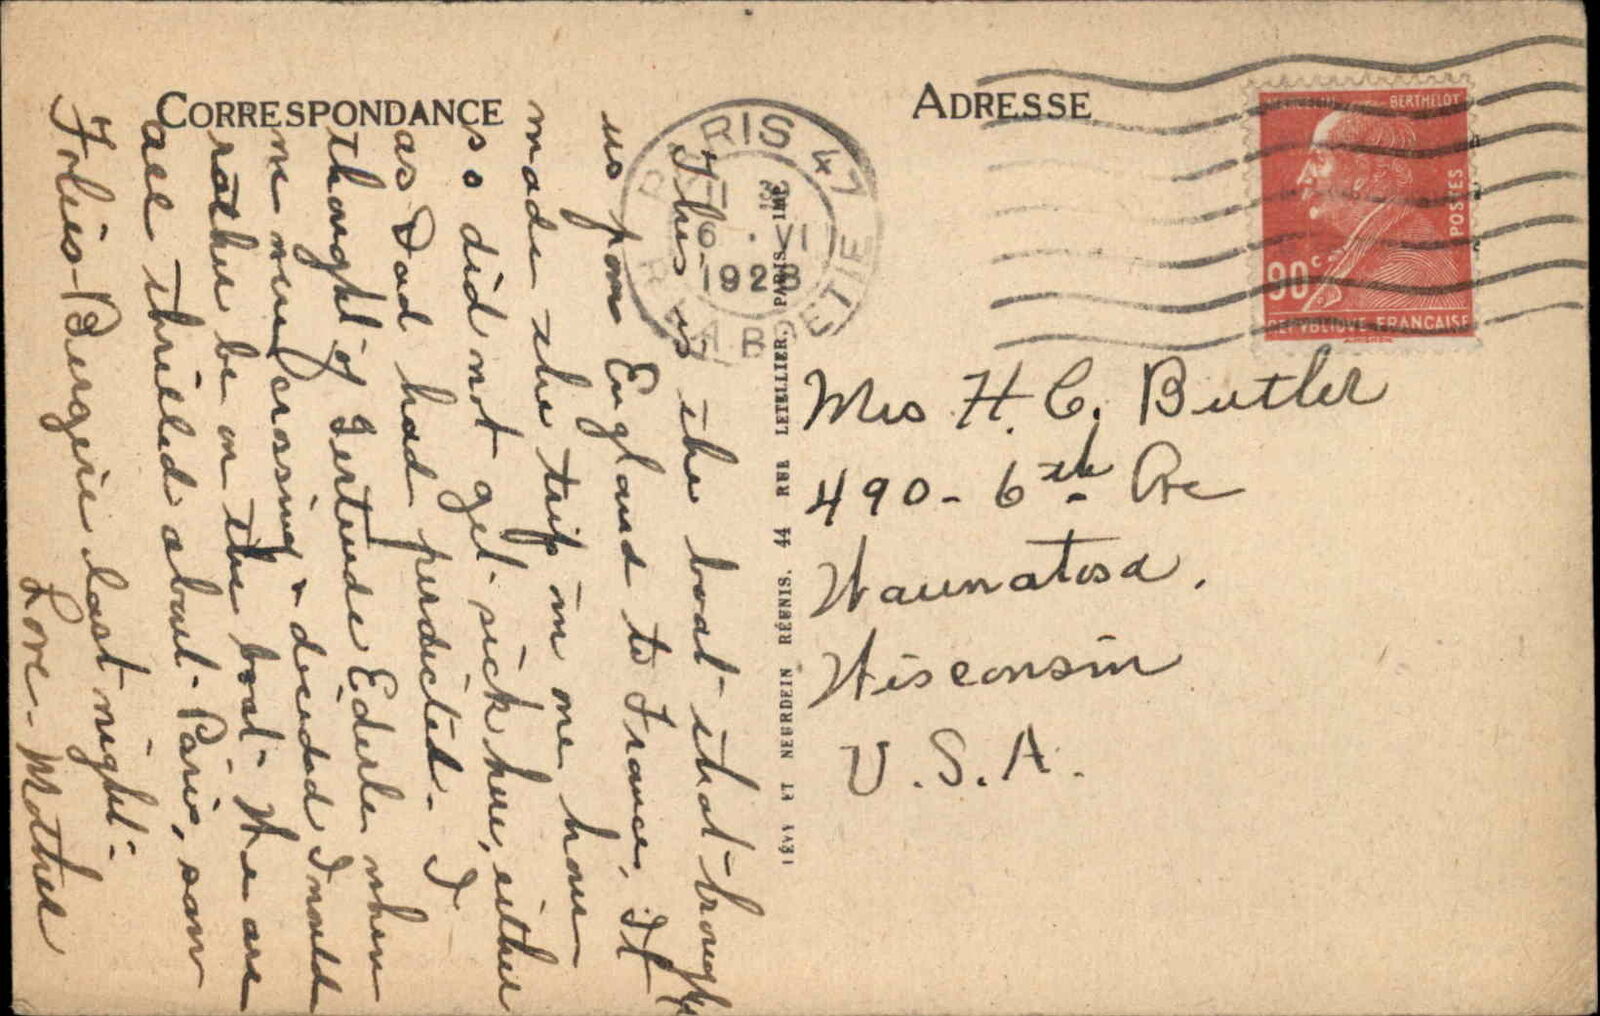 CORRESPONDANCE
This is the boat that brought
us from England to France. It
made the trip in one hour
so did not get sick here, either
as Dad had perdicted. I
thought of Gertrude Ederle when
we were crossing & decided I would
rather be on the boat. We are
all thrilled about Paris, saw
Folies-Bergire last night.
Love - Mother
PARIS 47
16
6 · VI
1928
R. LA BOETIE
LÉVY ET NEURDEIN RÉUNIS, 44 RUE LETELLIER, PARIS
ADRESSE
BERTHELOT
POSTES
90c
REPVBLIQVE FRANCAISE
Mrs H. C. Butler
490 - 6th Ave
Wauwatosa,
Wisconsin
U.S.A.